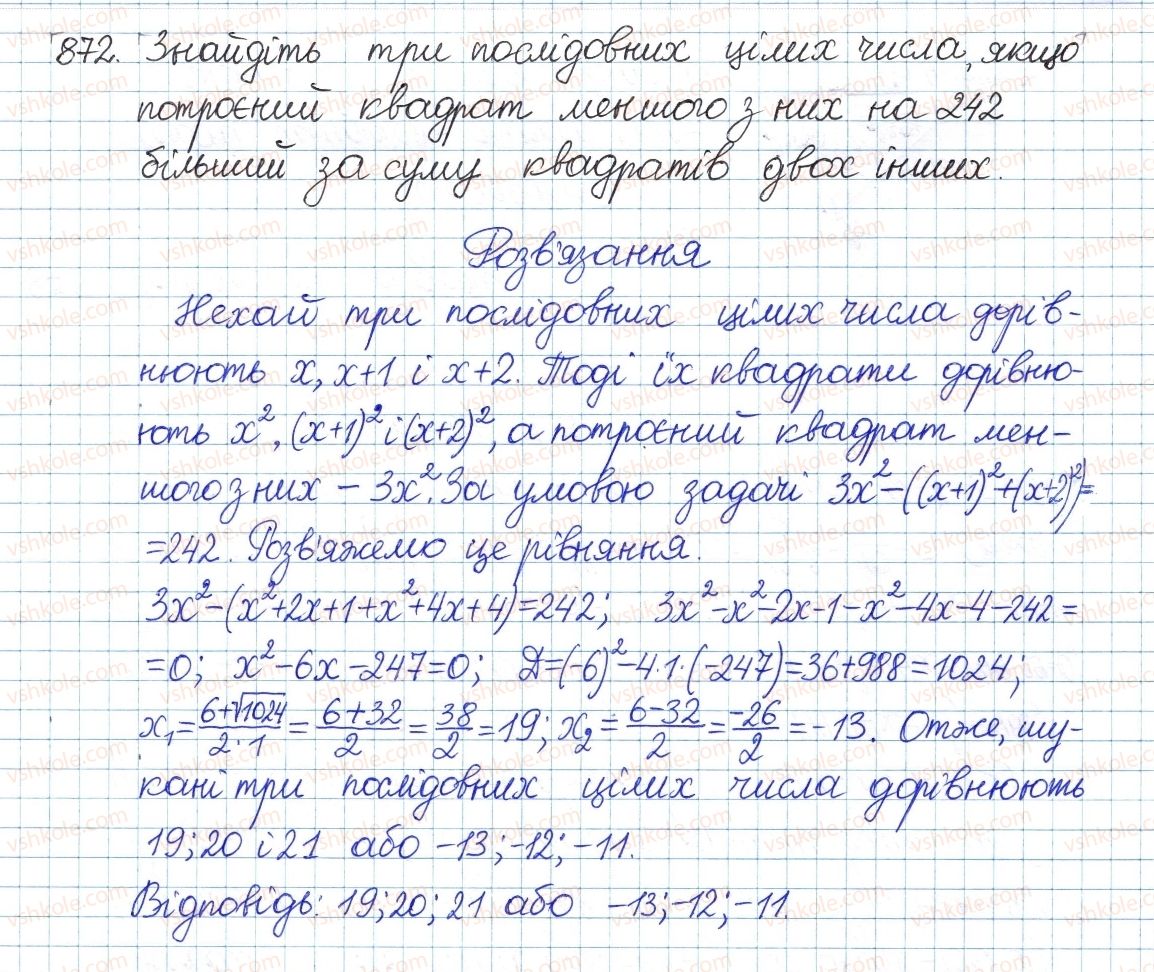 872. Знайдіть три послідовних цілих числа, якщо
потроєний квадрат меншого з них на 242
більший за суму квадратів двох інших.
Розв'язання
Нехай три послідовних цілих числа дорів-
нюють x, x+1 і x+2. Тоді їх квадрати дорівню-
ють x², (x+1)² і (x+2)², а потроєний квадрат мен-
шого з них – 3x². За умовою задачі 3x²-((x+1)²+(x+2)²)=
=242. Розв'яжемо це рівняння.
3x²-(x²+2x+1+x²+4x+4)=242; 3x²-x²-2x-1-x²-4x-4-242=
=0; x²-6x-247=0; Д=(-6)²-4·1·(-247)=36+988=1024;
x₁=(6+√1024)/(2·1)=(6+32)/2=38/2=19; x₂=(6-32)/2=-26/2=-13. Отже, шу-
кані три послідовних цілих числа дорівнюють
19; 20 і 21 або -13; -12; -11.
Відповідь: 19; 20; 21 або -13; -12; -11.